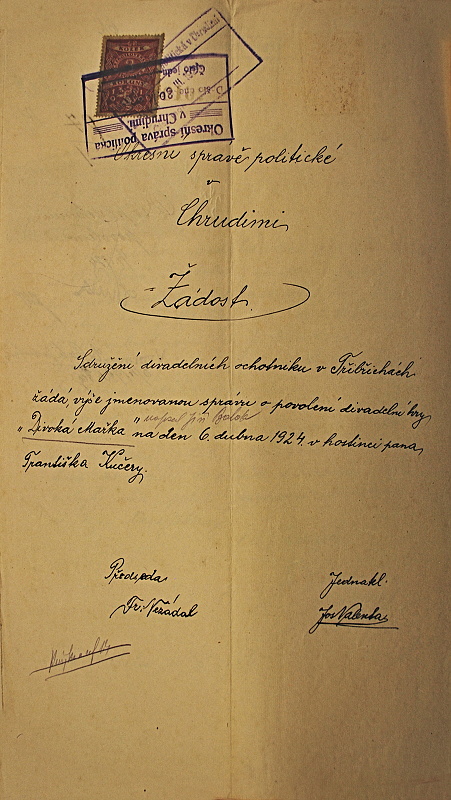 KOLEK
Okresní správa politická
v Chrudimi.
Okresní správě politické
v
Chrudimi
Žádost.
Sdružení divadelních ochotniku v Třibřichách
žádá, výše jmenovanou správu o povolení divadelní hry
napsal Jiří
„Divoká Mařka" na den 6. dubna 1924. v hostinci pana
Františka Kučery.
Předseda
Fr. Nežádal
Jednatel.
Jos Valenta